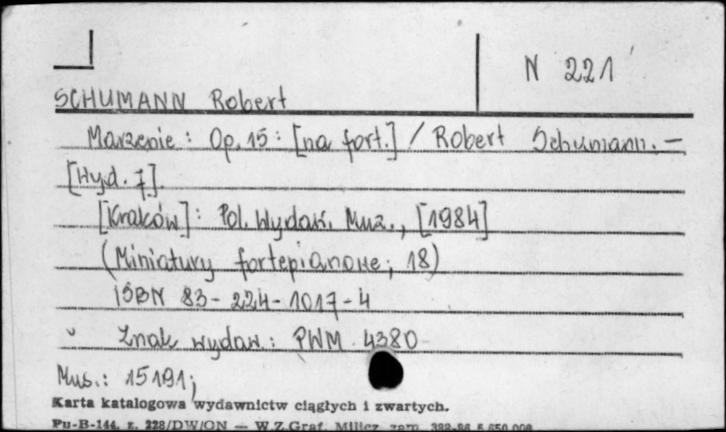 N 221
SCHUMANN Robert
Marzenie : Op. 15 : [na fort.] / Robert Schumann. —
[Wyd. 7]
[Kraków] : Pol. Wydaw. Muz., [1984]
(Miniatury fortepianowe ; 18)
ISBN 83-224-1017-4
Znak wydaw.: PWM 4380
Mus.: 15191;
Karta katalogowa wydawnictw ciągłych i zwartych.
Pu-B-144, z. 228/DW/ON — W.Z.Graf. Milicz zam.